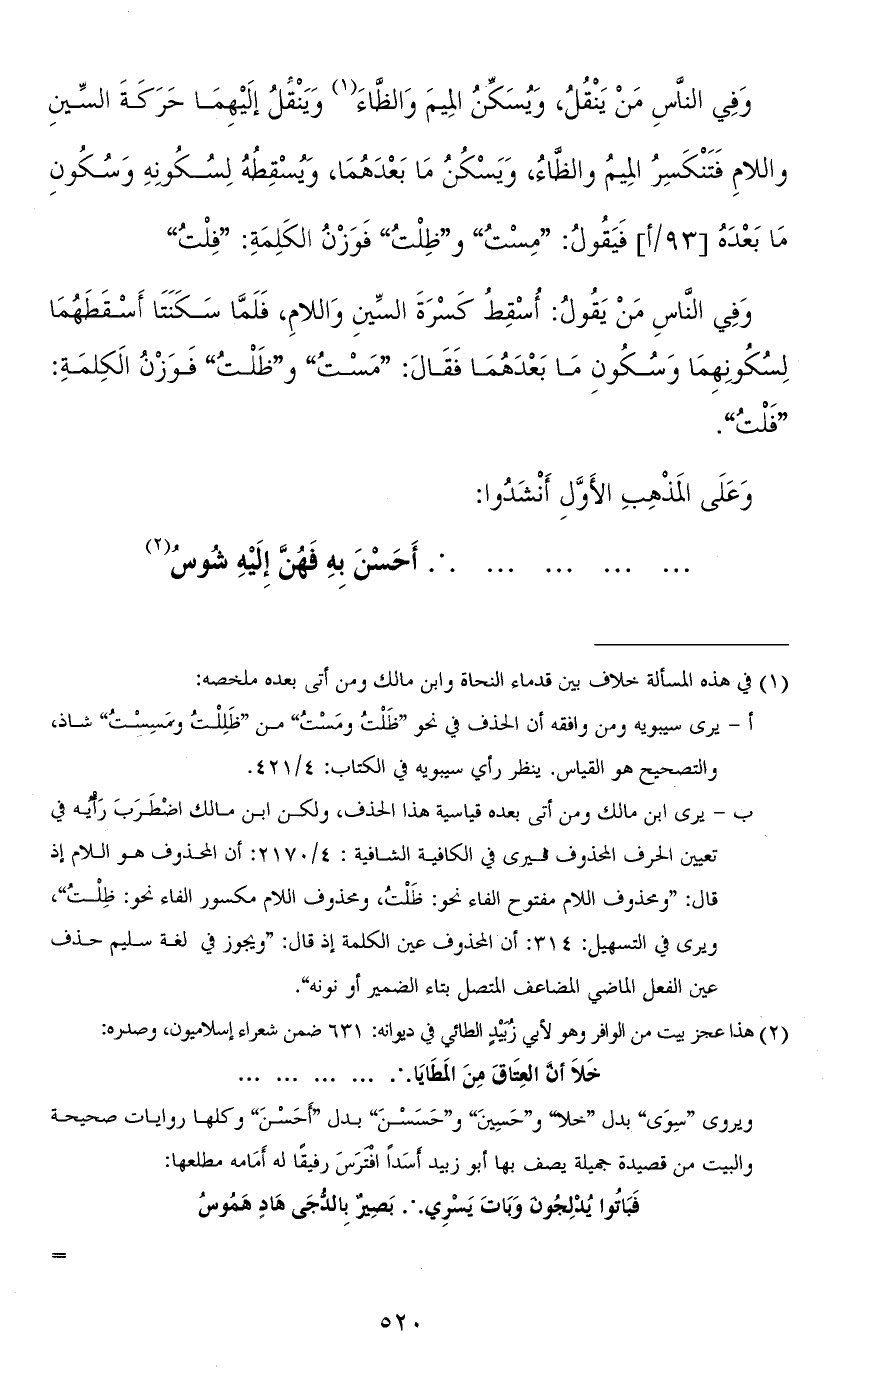 وَفِي النَّاسِ مَنْ يَنْقُلُ، وَيُسَكِّنُ المِيمَ وَالظَّاءَ(١) وَيَنْقُلُ إِلَيْهِمَا حَرَكَةَ السِّينِ
واللامِ فَتَنْكَسِرُ المِيمُ والظَّاءُ، وَيَسْكُنُ مَا بَعْدَهُمَا، وَيُسْقِطُهُ لِسُكُونِهِ وَسُكُونِ
مَا بَعْدَهُ [٩٣/أ] فَيَقُولُ: ”مِسْتُ“ و”ظِلْتُ“ فَوَزْنُ الكَلِمَةِ: ”فِلْتُ“
وَفِي النَّاسِ مَنْ يَقُولُ: أُسْقِطُ كَسْرَةَ السِّينِ وَاللامِ، فَلَمَّا سَكَنَتَا أَسْقَطَهُمَا
لِسُكُونِهِمَا وَسُكُونِ مَا بَعْدَهُمَا فَقَالَ: ”مَسْتُ“ و”ظَلْتُ“ فَوَزْنُ الكَلِمَةِ:
”فَلْتُ“.
وَعَلَى المَذْهبِ الأَوَّلِ أَنْشَدُوا:
... ... ... ... ∴ أَحَسْنَ بِهِ فَهُنَّ إِلَيْهِ شُوسُ(٢)
(١) في هذه المسألة خلاف بين قدماء النحاة وابن مالك ومن أتى بعده ملخصه:
أ – يرى سيبويه ومن وافقه أن الحذف في نحو ”ظَلْتُ ومَسْتُ“ من ”ظَلِلْتُ ومَسِسْتُ“ شاذ،
والتصحيح هو القياس. ينظر رأي سيبويه في الكتاب: ٤٢١/٤.
ب – يرى ابن مالك ومن أتى بعده قياسية هذا الحذف، ولكن ابن مالك اضْطَرَبَ رَأْيُه في
تعيين الحرف المحذوف فيرى في الكافية الشافية : ٢١٧٠/٤: أن المحذوف هو اللام إذ
قال: ”ومحذوف اللام مفتوح الفاء نحو: ظَلْتُ، ومحذوف اللام مكسور الفاء نحو: ظِلْتُ“،
ويرى في التسهيل: ٣١٤: أن المحذوف عين الكلمة إذ قال: ”ويجوز في لغة سليم حذف
عين الفعل الماضي المضاعف المتصل بتاء الضمير أو نونه“.
(٢) هذا عجز بيت من الوافر وهو لأبي زُبَيْدٍ الطائي في ديوانه: ٦٣١ ضمن شعراء إسلاميون، وصدره:
خَلاَ أَنَّ العِتَاقَ مِنَ المَطَايَا ∴ ... ... ... ...
ويروى ”سِوَى“ بدل ”خلا“ و”حَسِينَ“ و”حَسَسْنَ“ بدل ”أَحَسْنَ“ وكلها روايات صحيحة
والبيت من قصيدة جميلة يصف بها أبو زبيد أسَداً افْتَرَسَ رفيقًا له أَمَامه مطلعها:
فَبَاتُوا يُدْلِجُونَ وَبَاتَ يَسْرِي ∴ بَصِيرٌ بِالدُّجَى هَادٍ هَمُوسُ
=
٥٢٠